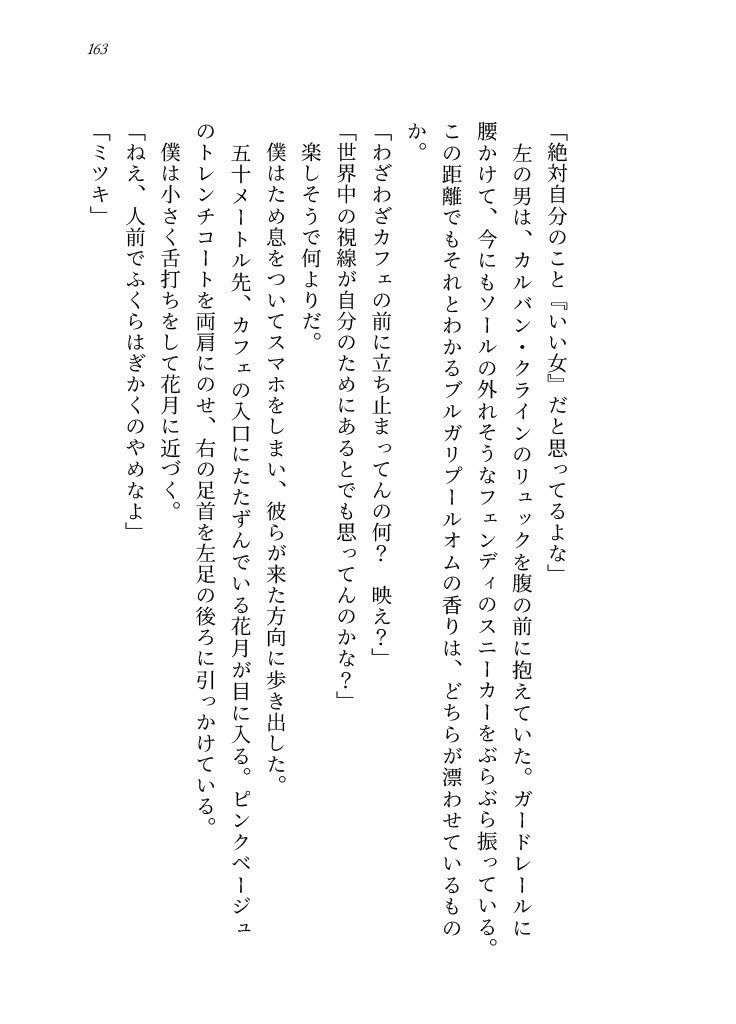 163
「絶対自分のこと『いい女』だと思ってるよな」
左の男は、カルバン・クラインのリュックを腹の前に抱えていた。ガードレールに
腰かけて、今にもソールの外れそうなフェンディのスニーカーをぶらぶら振っている。
この距離でもそれとわかるブルガリプールオムの香りは、どちらが漂わせているもの
か。
「わざわざカフェの前に立ち止まってんの何？　映え？」
「世界中の視線が自分のためにあるとでも思ってんのかな？」
楽しそうで何よりだ。
僕はため息をついてスマホをしまい、彼らが来た方向に歩き出した。
五十メートル先、カフェの入口にたたずんでいる花月が目に入る。ピンクベージュ
のトレンチコートを両肩にのせ、右の足首を左足の後ろに引っかけている。
僕は小さく舌打ちをして花月に近づく。
「ねえ、人前でふくらはぎかくのやめなよ」
「ミツキ」